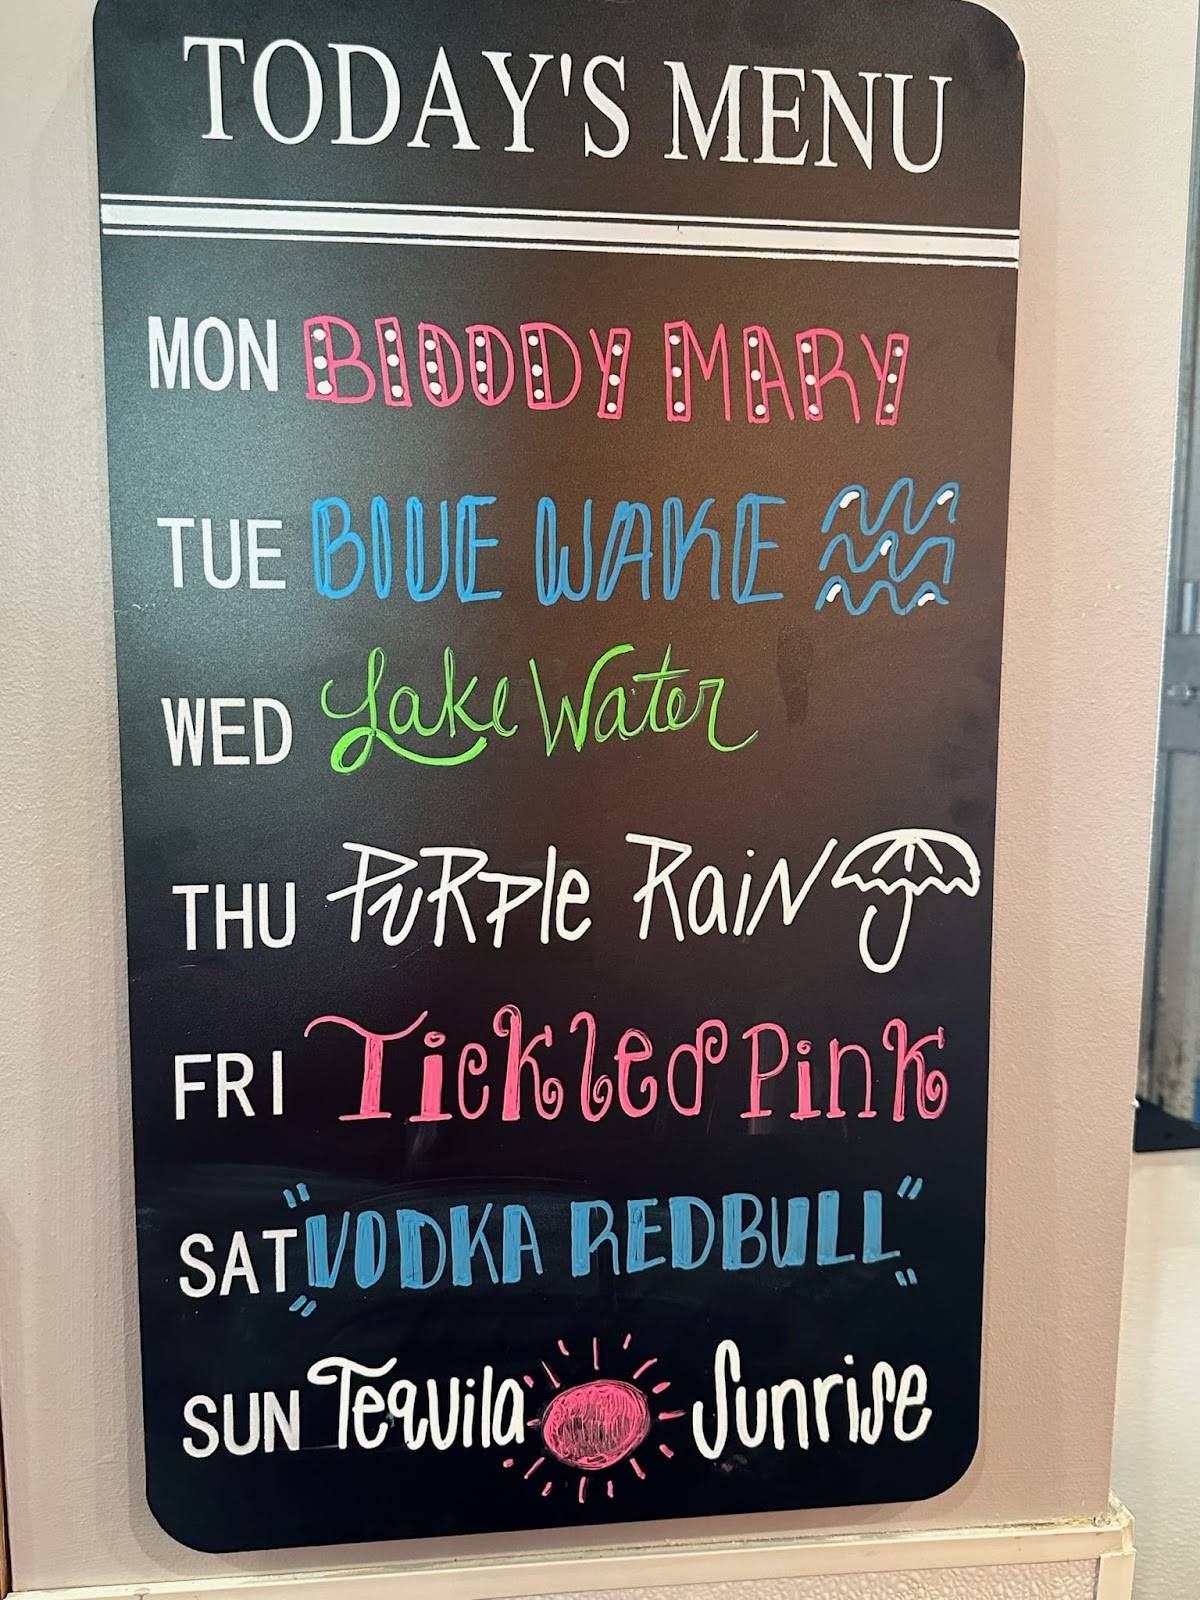 TODAY'S MENU
MON BLOODY MARY
TUE BLUE WAKE
WED Lake Water
THU PURPle RaiN
FRI Tickled Pink
SAT "VODKA REDBULL"
SUN Tequila Sunrise